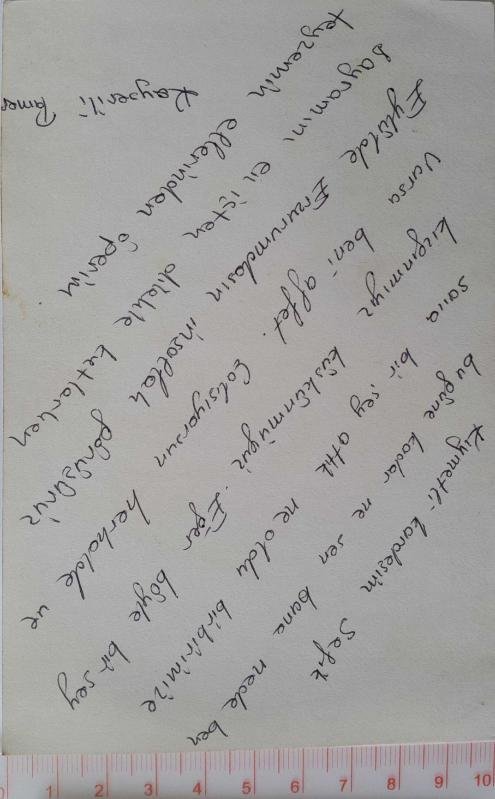 Kıymetli kardeşim Sefik
bugüne kadar ne sen bana nede ben
sana bir şey attık ne oldu birbirimize
kırgınmıyız küskünmüyüz. Eğer böyle bir şey
Varsa beni affet. Çalışıyorsun herhalde ve
Eylülde Erzurumdasın inşallah görüşürüz
bayramını en içten dilekle kutlarken
teyzemin ellerinden öperim.
Kayserili Tamer
0 1 2 3 4 5 6 7 8 9 10